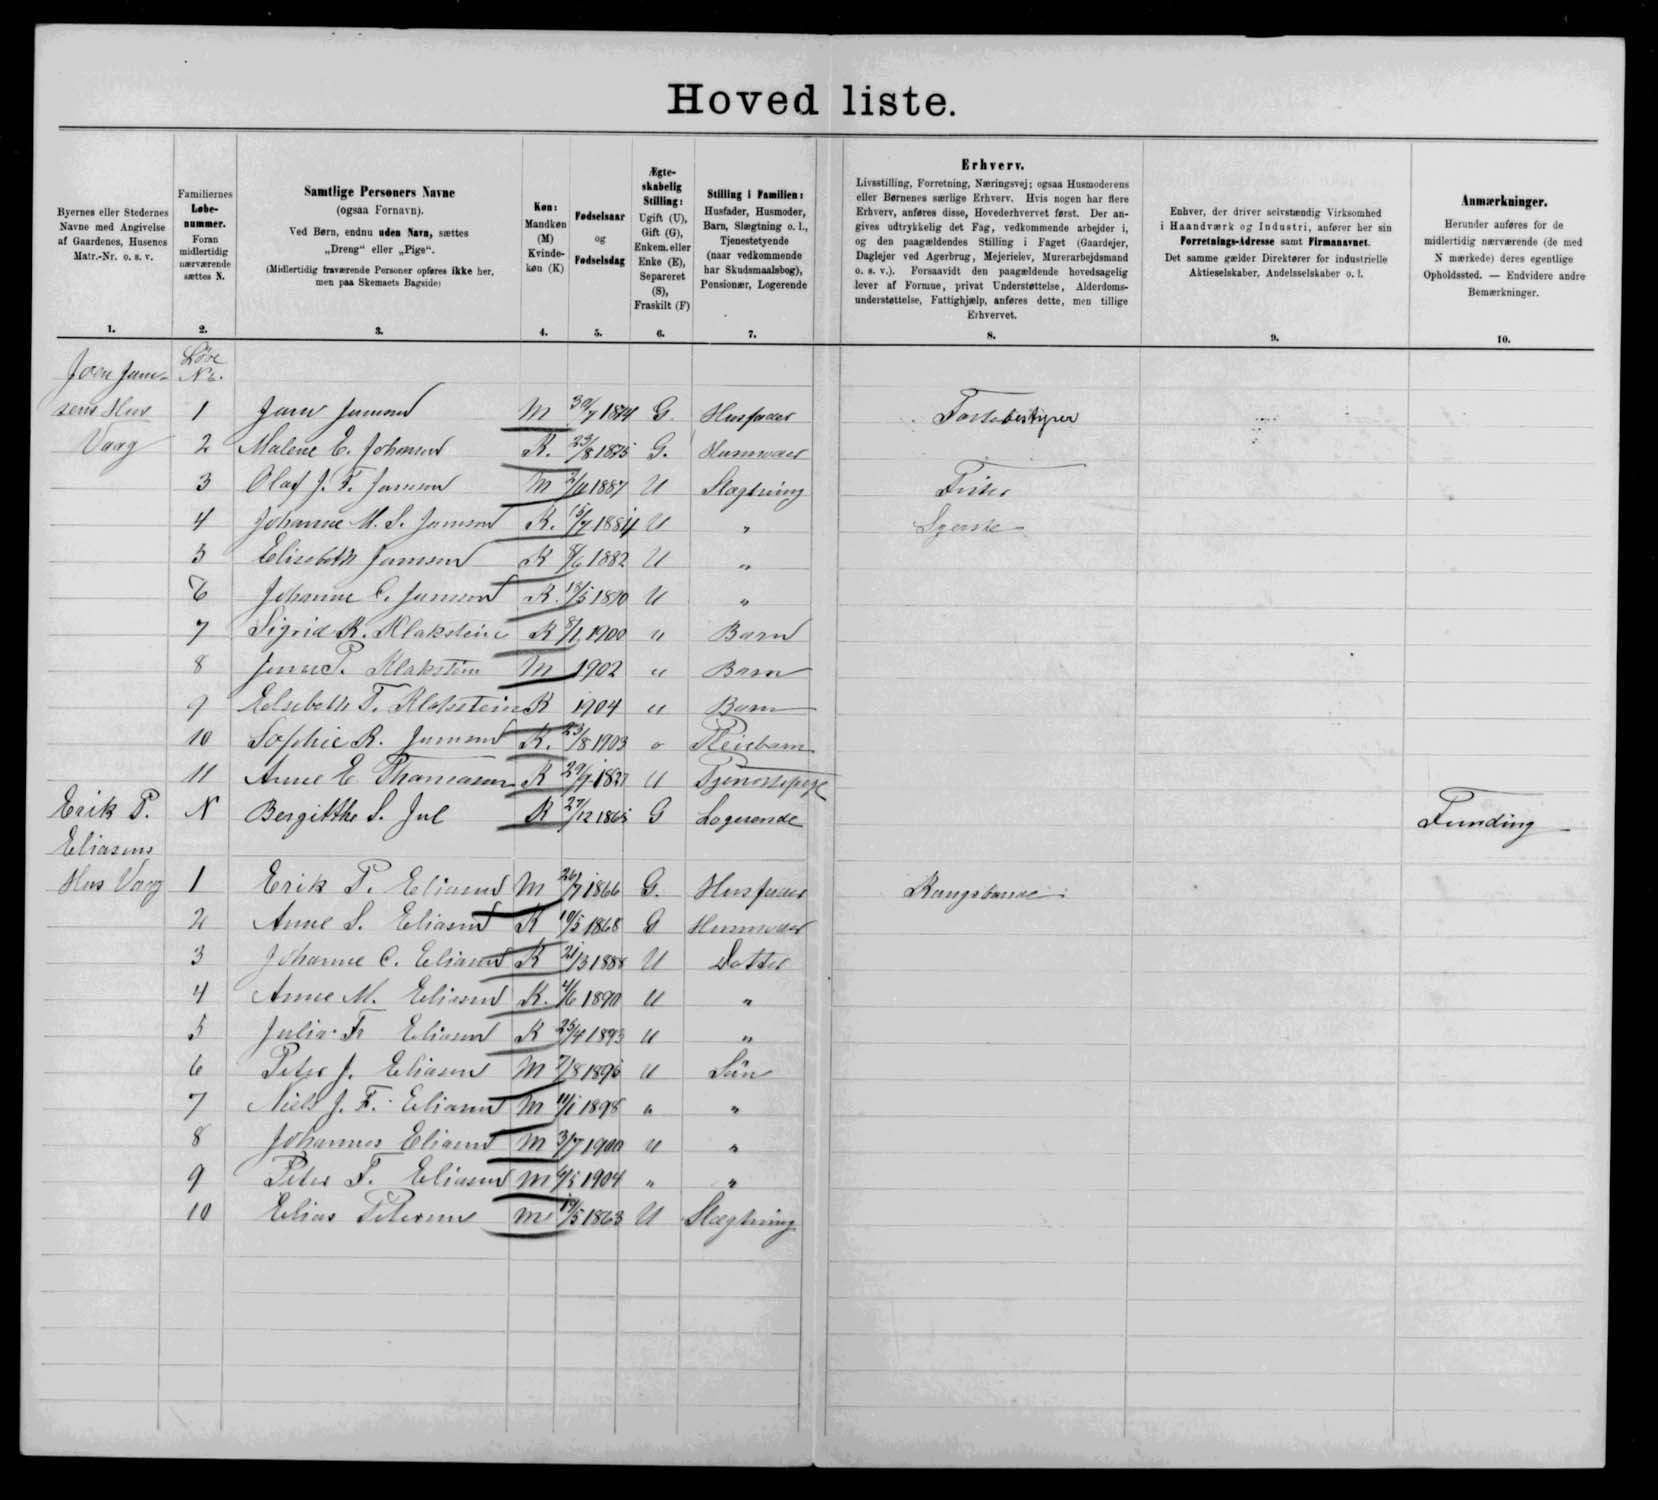 Hovedliste.
Byernes eller Stedernes
Navne med Angivelse
af Gaardenes, Husenes
Matr.-Nr. o. s. v.
1.
Familiernes
Løbe-
nummer.
Foran
midlertidig
nærværende
sættes N.
2.
Samtlige Personers Navne
(ogsaa Fornavn).
Ved Børn, endnu uden Navn, sættes
„Dreng“ eller „Pige“.
(Midlertidig fraværende Personer opføres ikke her,
men paa Skemaets Bagside)
3.
Køn:
Mandkøn
(M)
Kvinde-
køn (K)
4.
Fødselsaar
og
Fødselsdag
5.
Ægte-
skabelig
Stilling:
Ugift (U),
Gift (G),
Enkem. eller
Enke (E),
Separeret
(S),
Fraskilt (F)
6.
Stilling i Familien:
Husfader, Husmoder,
Barn, Slægtning o. l.,
Tjenestetyende
(naar vedkommende
har Skudsmaalsbog),
Pensionær, Logerende
7.
Erhverv.
Livsstilling, Forretning, Næringsvej; ogsaa Husmoderens
eller Børnenes særlige Erhverv. Hvis nogen har flere
Erhverv, anføres disse, Hovederhvervet først. Der an-
gives udtrykkelig det Fag, vedkommende arbejder i,
og den paagældendes Stilling i Faget (Gaardejer,
Daglejer ved Agerbrug, Mejerielev, Murerarbejdsmand
o. s. v.). Forsaavidt den paagældende hovedsagelig
lever af Formue, privat Understøttelse, Alderdoms-
understøttelse, Fattighjælp, anføres dette, men tillige
Erhvervet.
8.
Enhver, der driver selvstændig Virksomhed
i Haandværk og Industri, anfører her sin
Forretnings-Adresse samt Firmanavnet.
Det samme gælder Direktører for industrielle
Aktieselskaber, Andelsselskaber o. l.
9.
Anmærkninger.
Herunder anføres for de
midlertidig nærværende (de med
N mærkede) deres egentlige
Opholdssted. — Endvidere andre
Bemærkninger.
10.
Løbe
No.
1 M 30/7 1874 G. Husfader
Vaag 2 Malene E. Johansen K. 1875 G. Husmoder
3 Olaf J. F. Jamsen M 1887 U Slægtning Fisker
4 Johanne M. S. Jamsen K. 15/7 1884 U „ Syerske
5 Elisabeth Jamsen K 8/6 1882 U „
6 Johanne C. Jamsen K. 18/5 1890 U „
7 Sigrid R. Klakstein K 8/1 1900 „ Barn
8 Klakstein M 1902 „ Barn
9 Elsebeth F. Klakstein K 1904 „ Barn
10 Sophie R. Jamsen K. 23/8 1903 „ Pleiebarn
11 Anne E. Thomasen K U Tjenestepige
Erik P. N Bergitthe S. Jul K 27/12 1865 G Logerende Funding
Eliasens
Hus Vaag 1 Erik P. Eliasen M 26/7 1866 G. Husfader
2 Anne S. Eliasen K 10/5 1868 G Husmoder
3 Johanne C. Eliasen K 21/3 1888 U Datter
4 Anne M. Eliasen K. 4/6 1890 U „
5 Julia Fr Eliasen K 25/4 1893 U „
6 Peter J. Eliasen M U Sön
7 Niels J. F. Eliasen M 1898 „ „
8 Johannes Eliasen M 3/7 1900 U „
9 Peter F. Eliasen M 6/5 1904 „ „
10 Elias Petersen M 1863 U Slægtning